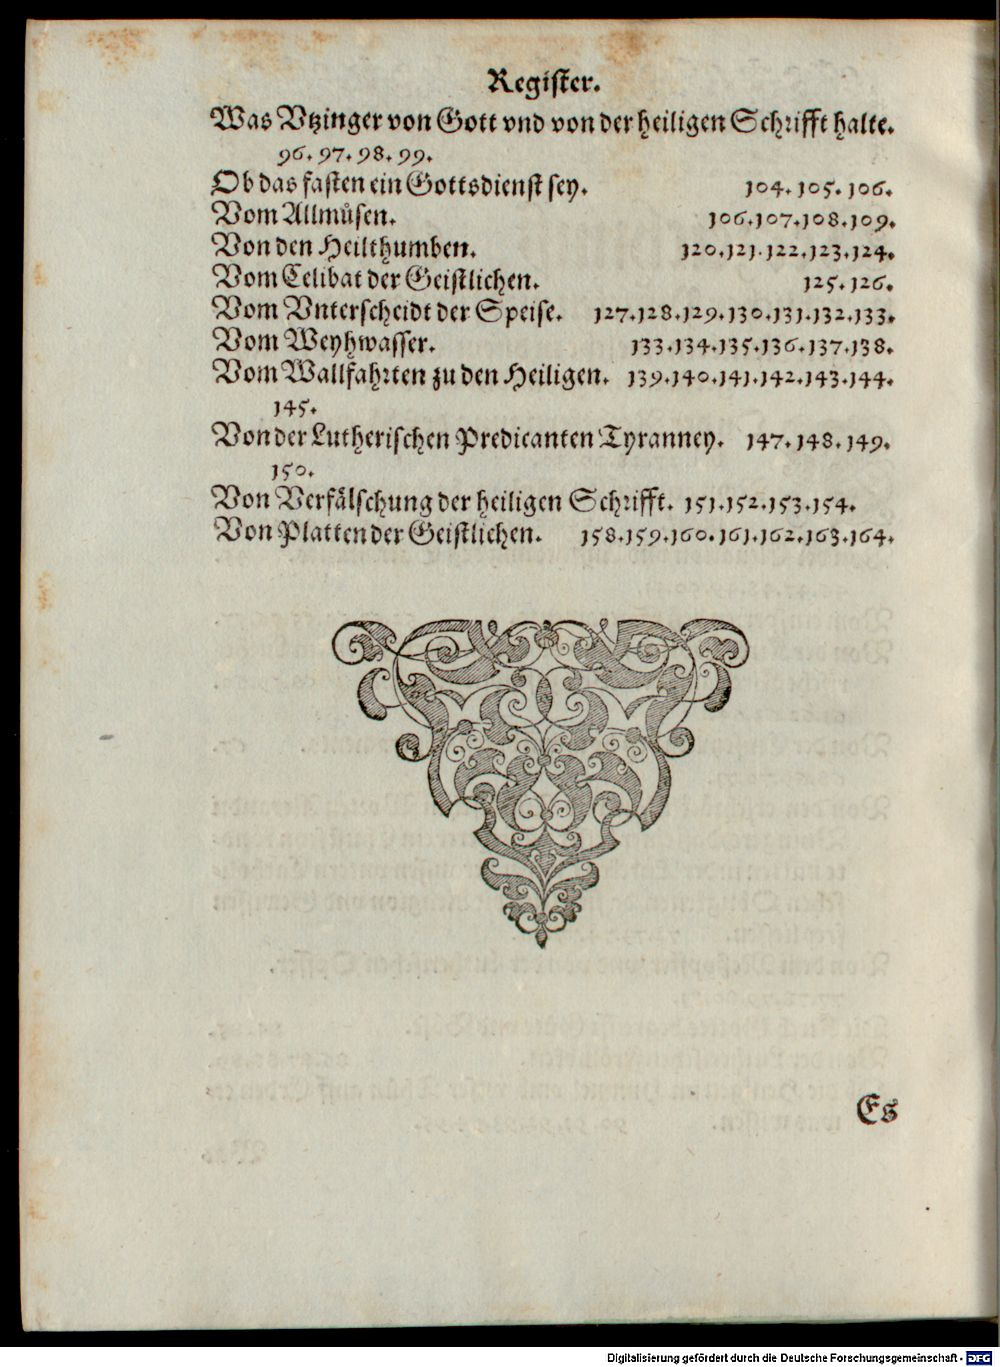 Register.
Was Vtzinger von Gott vnd von der heiligen Schrifft halte.
96. 97. 98. 99.
Ob das fasten ein Gottsdienst sey. 104. 105. 106.
Vom Allmůsen. 106. 107. 108. 109.
Von den Heilthumben. 120. 121. 122. 123. 124.
Vom Celibat der Geistlichen. 125. 126.
Vom Vnterscheidt der Speise. 127. 128. 129. 130. 131. 132. 133.
Vom Weyhwasser. 133. 134. 135. 136. 137. 138.
Vom Wallfahrten zu den Heiligen. 139. 140. 141. 142. 143. 144.
145.
Von der Lutherischen Predicanten Tyranney. 147. 148. 149.
150.
Von Verfälschung der heiligen Schrifft. 151. 152. 153. 154.
Von Platten der Geistlichen. 158. 159. 160. 161. 162. 163. 164.
Es
Digitalisierung gefördert durch die Deutsche Forschungsgemeinschaft - DFG